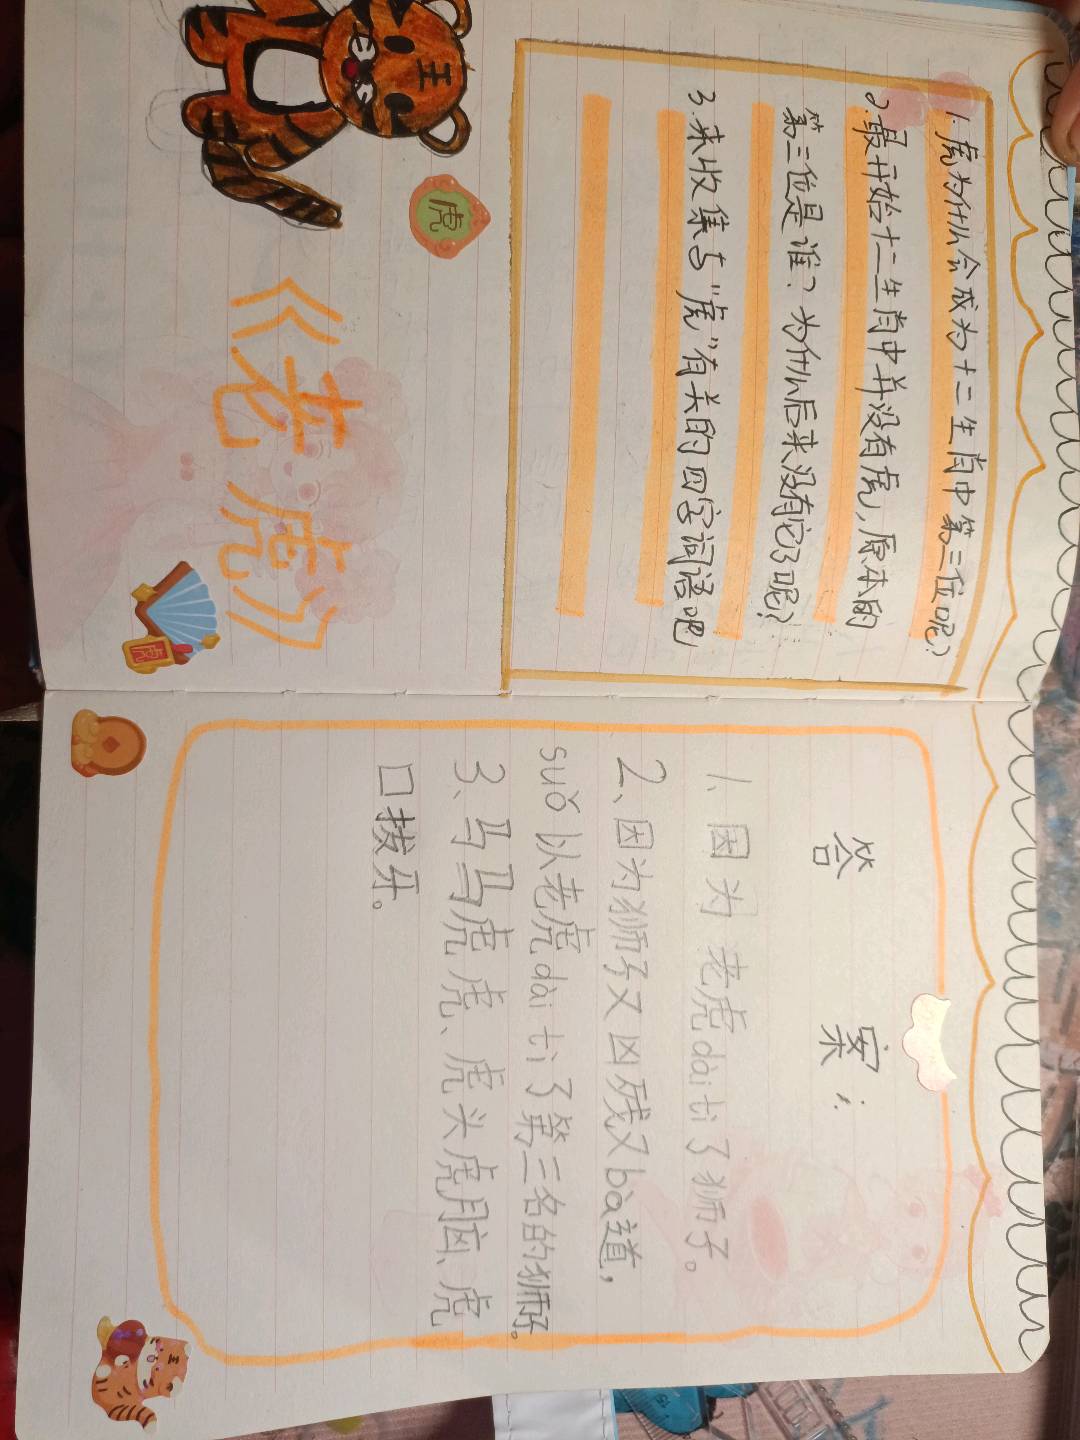 《老虎》
虎
虎
王
1.虎为什么会成为十二生肖中第三位呢?
2.最开始十二生肖中并没有虎,原本的
第三位是谁?为什么后来没有它了呢?
3.来收集与"虎"有关的四字词语吧
答案:
1、因为老虎dàitì了狮子。
2、因为狮子又凶残又bà道,
suǒ以老虎dàitì了第三名的狮子。
3、马马虎虎、虎头虎脑、虎
口拔牙。